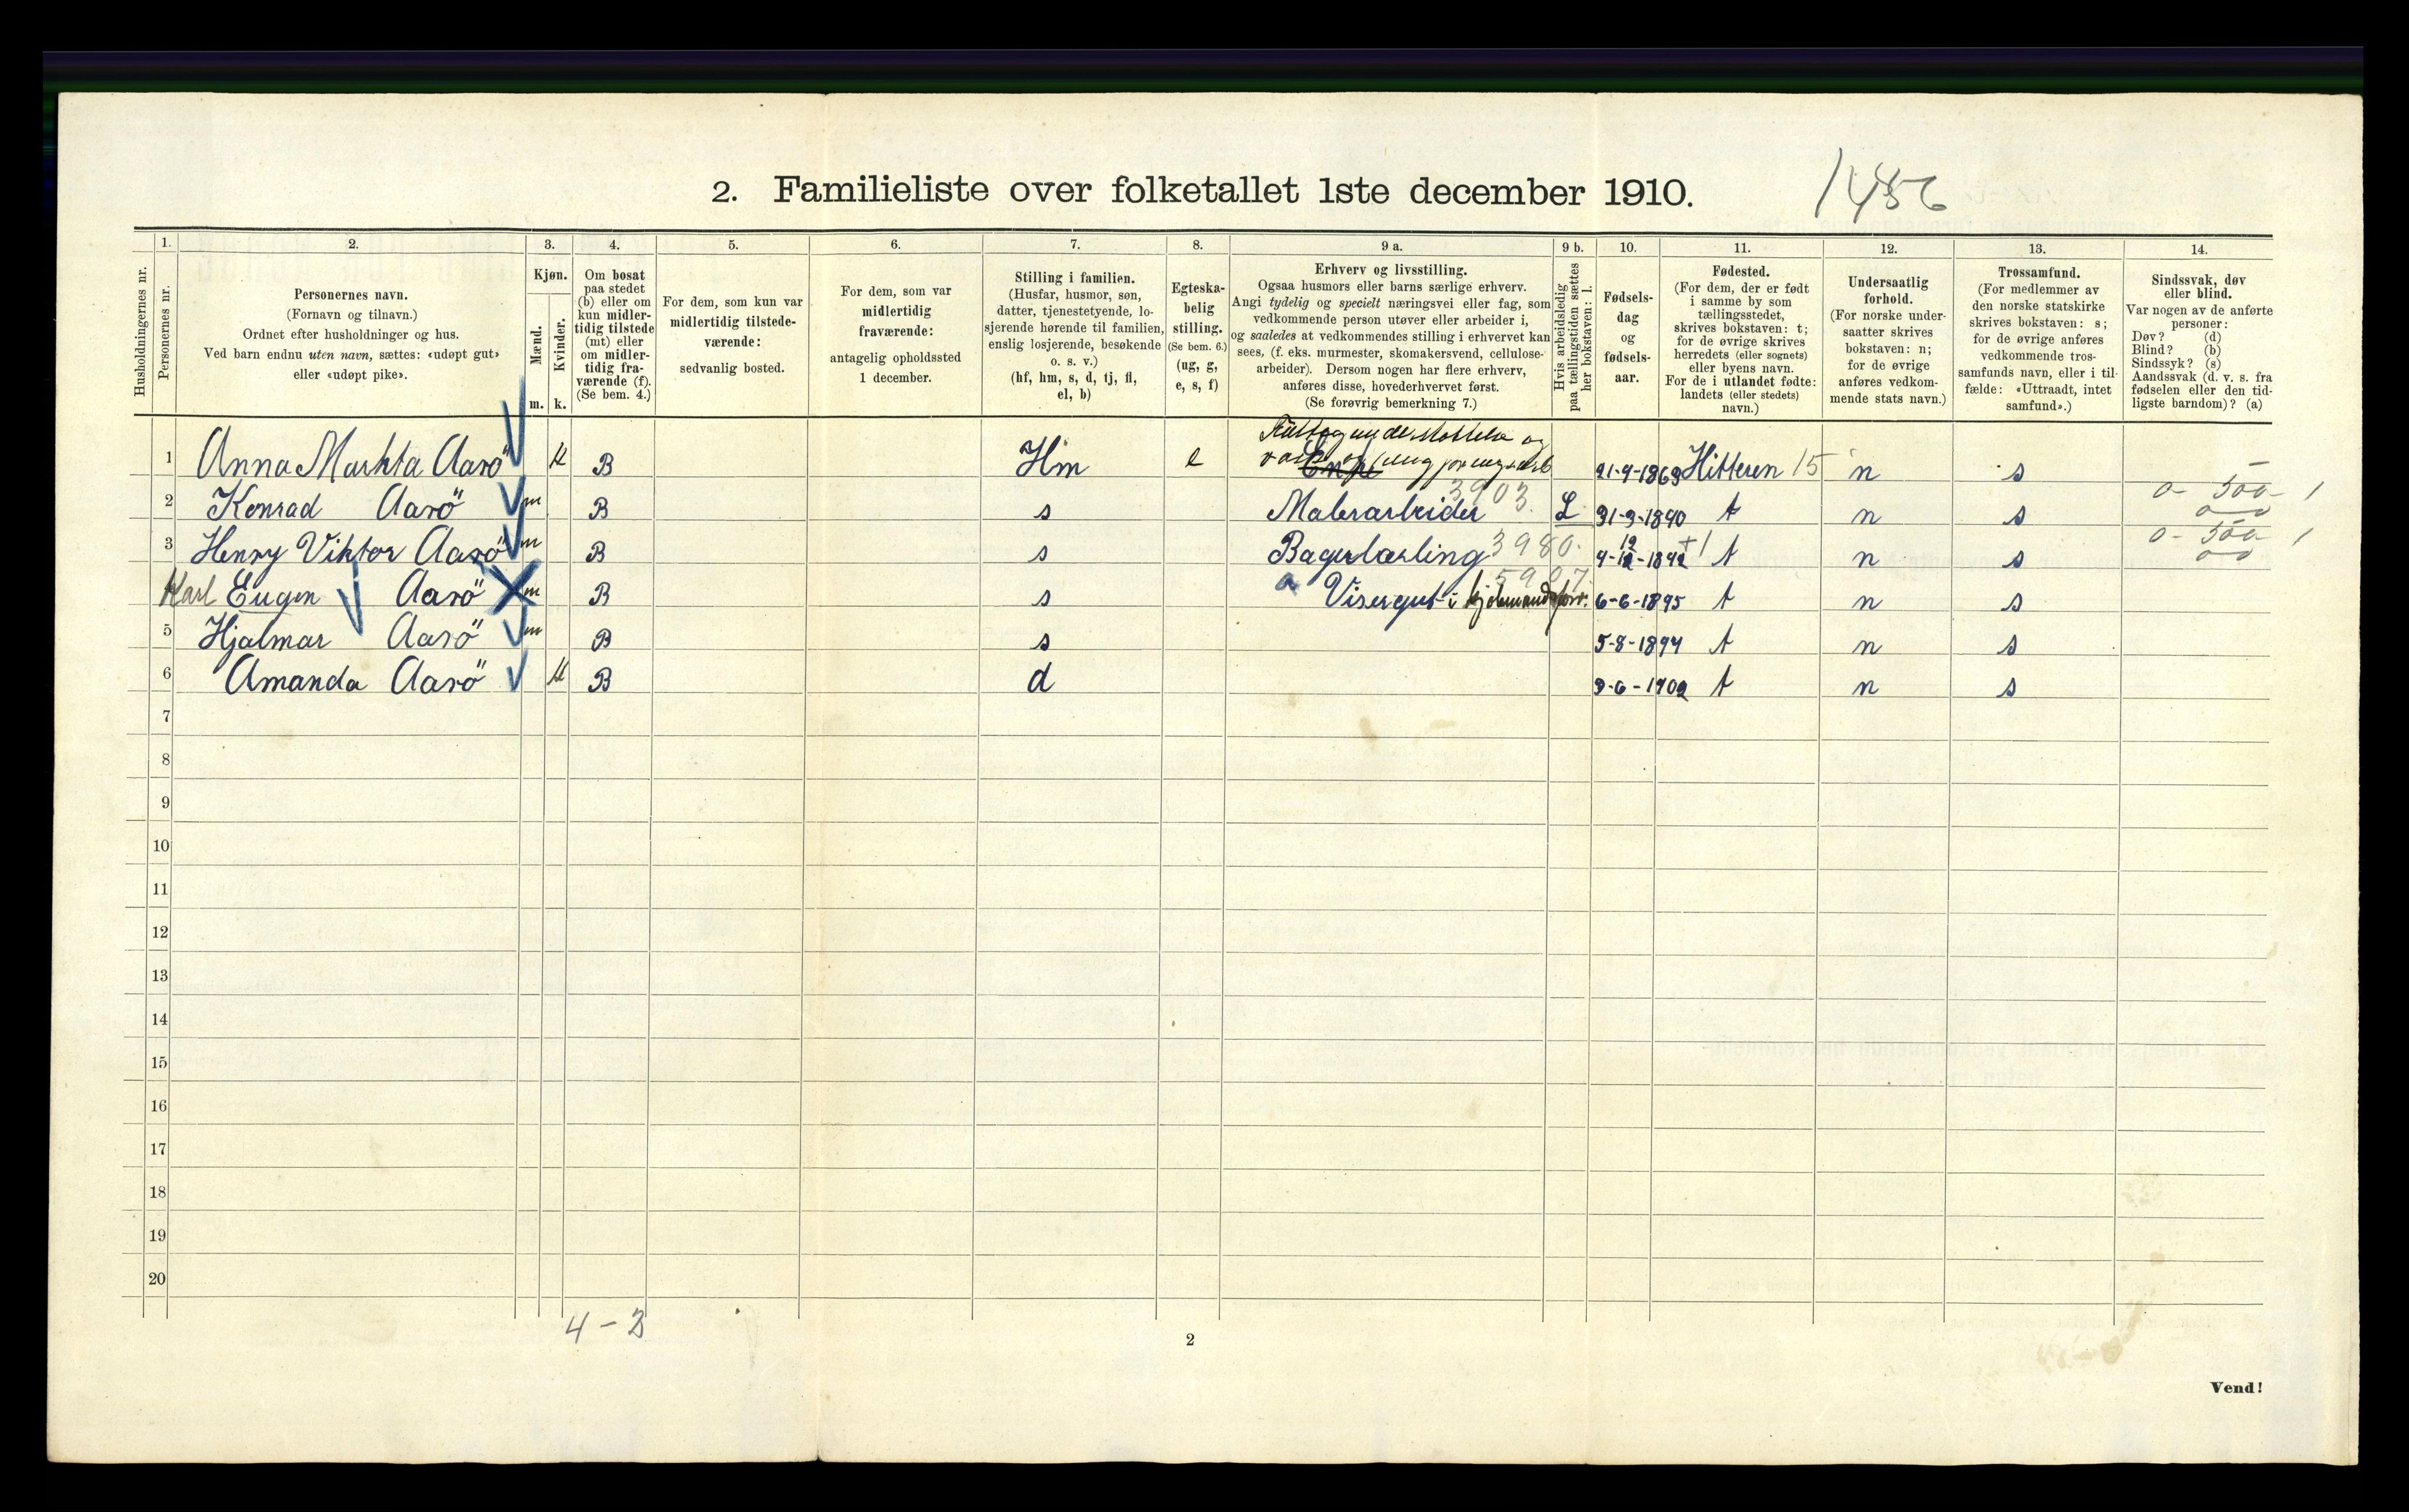 2. Familieliste over folketallet 1ste december 1910.
1486
1. 2. 3. 4. 5. 6. 7. 8. 9 a. 9 b. 10. 11. 12. 13. 14.
Husholdningernes nr.
Personernes nr.
Personernes navn.
(Fornavn og tilnavn.)
Ordnet efter husholdninger og hus.
Ved barn endnu uten navn, sættes: «udøpt gut»
eller «udøpt pike».
Kjøn.
Mænd.
m.
Kvinder.
k.
Om bosat
paa stedet
(b) eller om
kun midler-
tidig tilstede
(mt) eller
om midler-
tidig fra-
værende (f).
(Se bem. 4.)
For dem, som kun var
midlertidig tilstede-
værende:
sedvanlig bosted.
For dem, som var
midlertidig
fraværende:
antagelig opholdssted
1 december.
Stilling i familien.
(Husfar, husmor, søn,
datter, tjenestetyende, lo-
sjerende hørende til familien,
enslig losjerende, besøkende
o. s. v.)
(hf, hm, s, d, tj, fl,
el, b)
Egteska-
belig
stilling.
(Se bem. 6.)
(ug, g,
e, s, f)
Erhverv og livsstilling.
Ogsaa husmors eller barns særlige erhverv.
Angi tydelig og specielt næringsvei eller fag, som
vedkommende person utøver eller arbeider i,
og saaledes at vedkommendes stilling i erhvervet kan
sees, (f. eks. murmester, skomakersvend, cellulose-
arbeider). Dersom nogen har flere erhverv,
anføres disse, hovederhvervet først.
(Se forøvrig bemerkning 7.)
Hvis arbeidsledig
paa tællingstiden sættes
her bokstaven: l.
Fødsels-
dag
og
fødsels-
aar.
Fødested.
(For dem, der er født
i samme by som
tællingsstedet,
skrives bokstaven: t;
for de øvrige skrives
herredets (eller sognets)
eller byens navn.
For de i utlandet fødte:
landets (eller stedets)
navn.)
Undersaatlig
forhold.
(For norske under-
saatter skrives
bokstaven: n;
for de øvrige
anføres vedkom-
mende stats navn.)
Trossamfund.
(For medlemmer av
den norske statskirke
skrives bokstaven: s;
for de øvrige anføres
vedkommende tros-
samfunds navn, eller i til-
fælde: «Uttraadt, intet
samfund».)
Sindssvak, døv
eller blind.
Var nogen av de anførte
personer:
Døv? (d)
Blind? (b)
Sindssyk? (s)
Aandssvak (d. v. s. fra
fødselen eller den tid-
ligste barndom)? (a)
1 Anna Markta Aasö k B Hm e Enke 21-9-1863 Hitteren 15 n s
2 Konrad Aasö m B s Malerarbeider 3903. L 31-3-1890 t n s 0- 500- 1
3 Henry Viktor Aasö m B s Bagerlærling 3980. 4-12-1892 t n s 0- 500 1
Karl Eugen Aasö m B s Visergut i kjøbmandsforr. 6-6-1895 t n s
5 Hjalmar Aasö m B s 5-8-1897 t n s
6 Amanda Aasö k B d 3-6-1902 t n s
7
8
9
10
11
12
13
14
15
16
17
18
19
20
4-2
2
Vend!